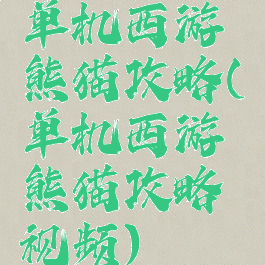 单机西游
熊猫攻略(
单机西游
熊猫攻略
视频)